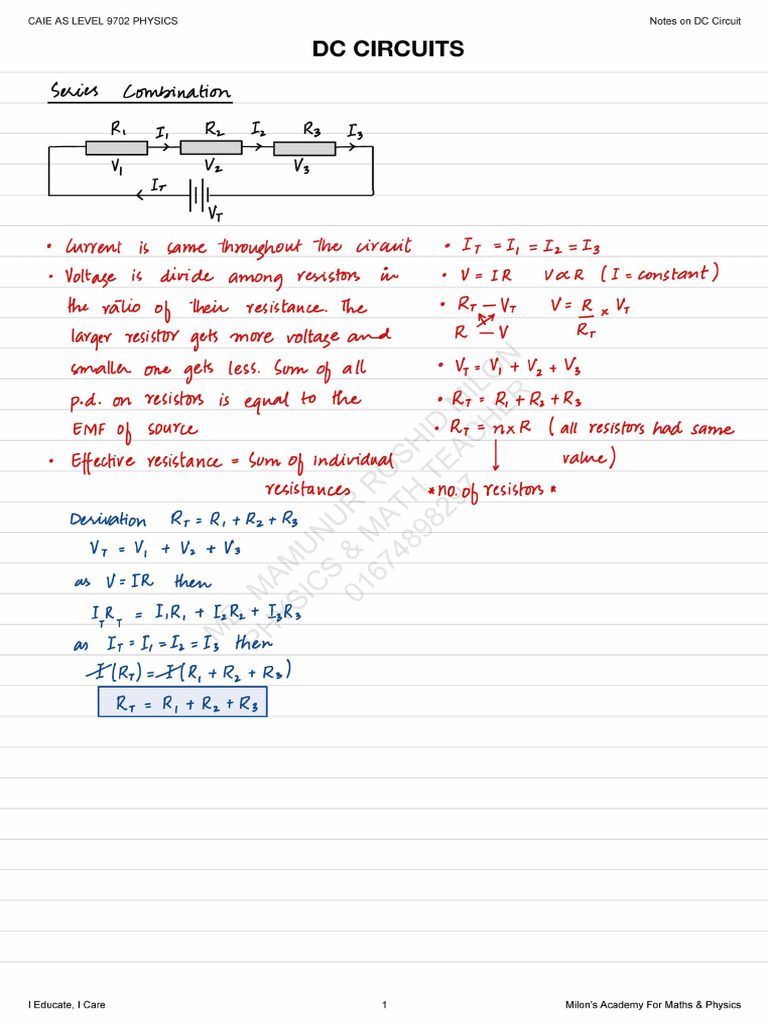 CAIE AS LEVEL 9702 PHYSICS
Notes on DC Circuit
DC CIRCUITS
Series Combination
R₁ I₁ R₂ I₂ R₃ I₃
V₁ V₂ V₃
I_T
V_T
• Current is same throughout the circuit
• Voltage is divide among resistors in
the ratio of their resistance. The
larger resistor gets more voltage and
smaller one gets less. Sum of all
p.d. on resistors is equal to the
EMF of source
• Effective resistance = Sum of individual
resistances
• I_T = I₁ = I₂ = I₃
• V = IR V∝R (I = constant)
• R_T — V_T V = R/R_T × V_T
R — V
• V_T = V₁ + V₂ + V₃
• R_T = R₁ + R₂ + R₃
• R_T = n×R (all resistors had same
value)
*no. of resistors*
Derivation R_T = R₁ + R₂ + R₃
V_T = V₁ + V₂ + V₃
as V = IR then
I_T R_T = I₁R₁ + I₂R₂ + I₃R₃
as I_T = I₁ = I₂ = I₃ then
I(R_T) = I(R₁ + R₂ + R₃)
R_T = R₁ + R₂ + R₃
MD. MAMUNUR ROSHID MILON
PHYSICS & MATH TEACHER
01674898297
I Educate, I Care
1
Milon's Academy For Maths & Physics